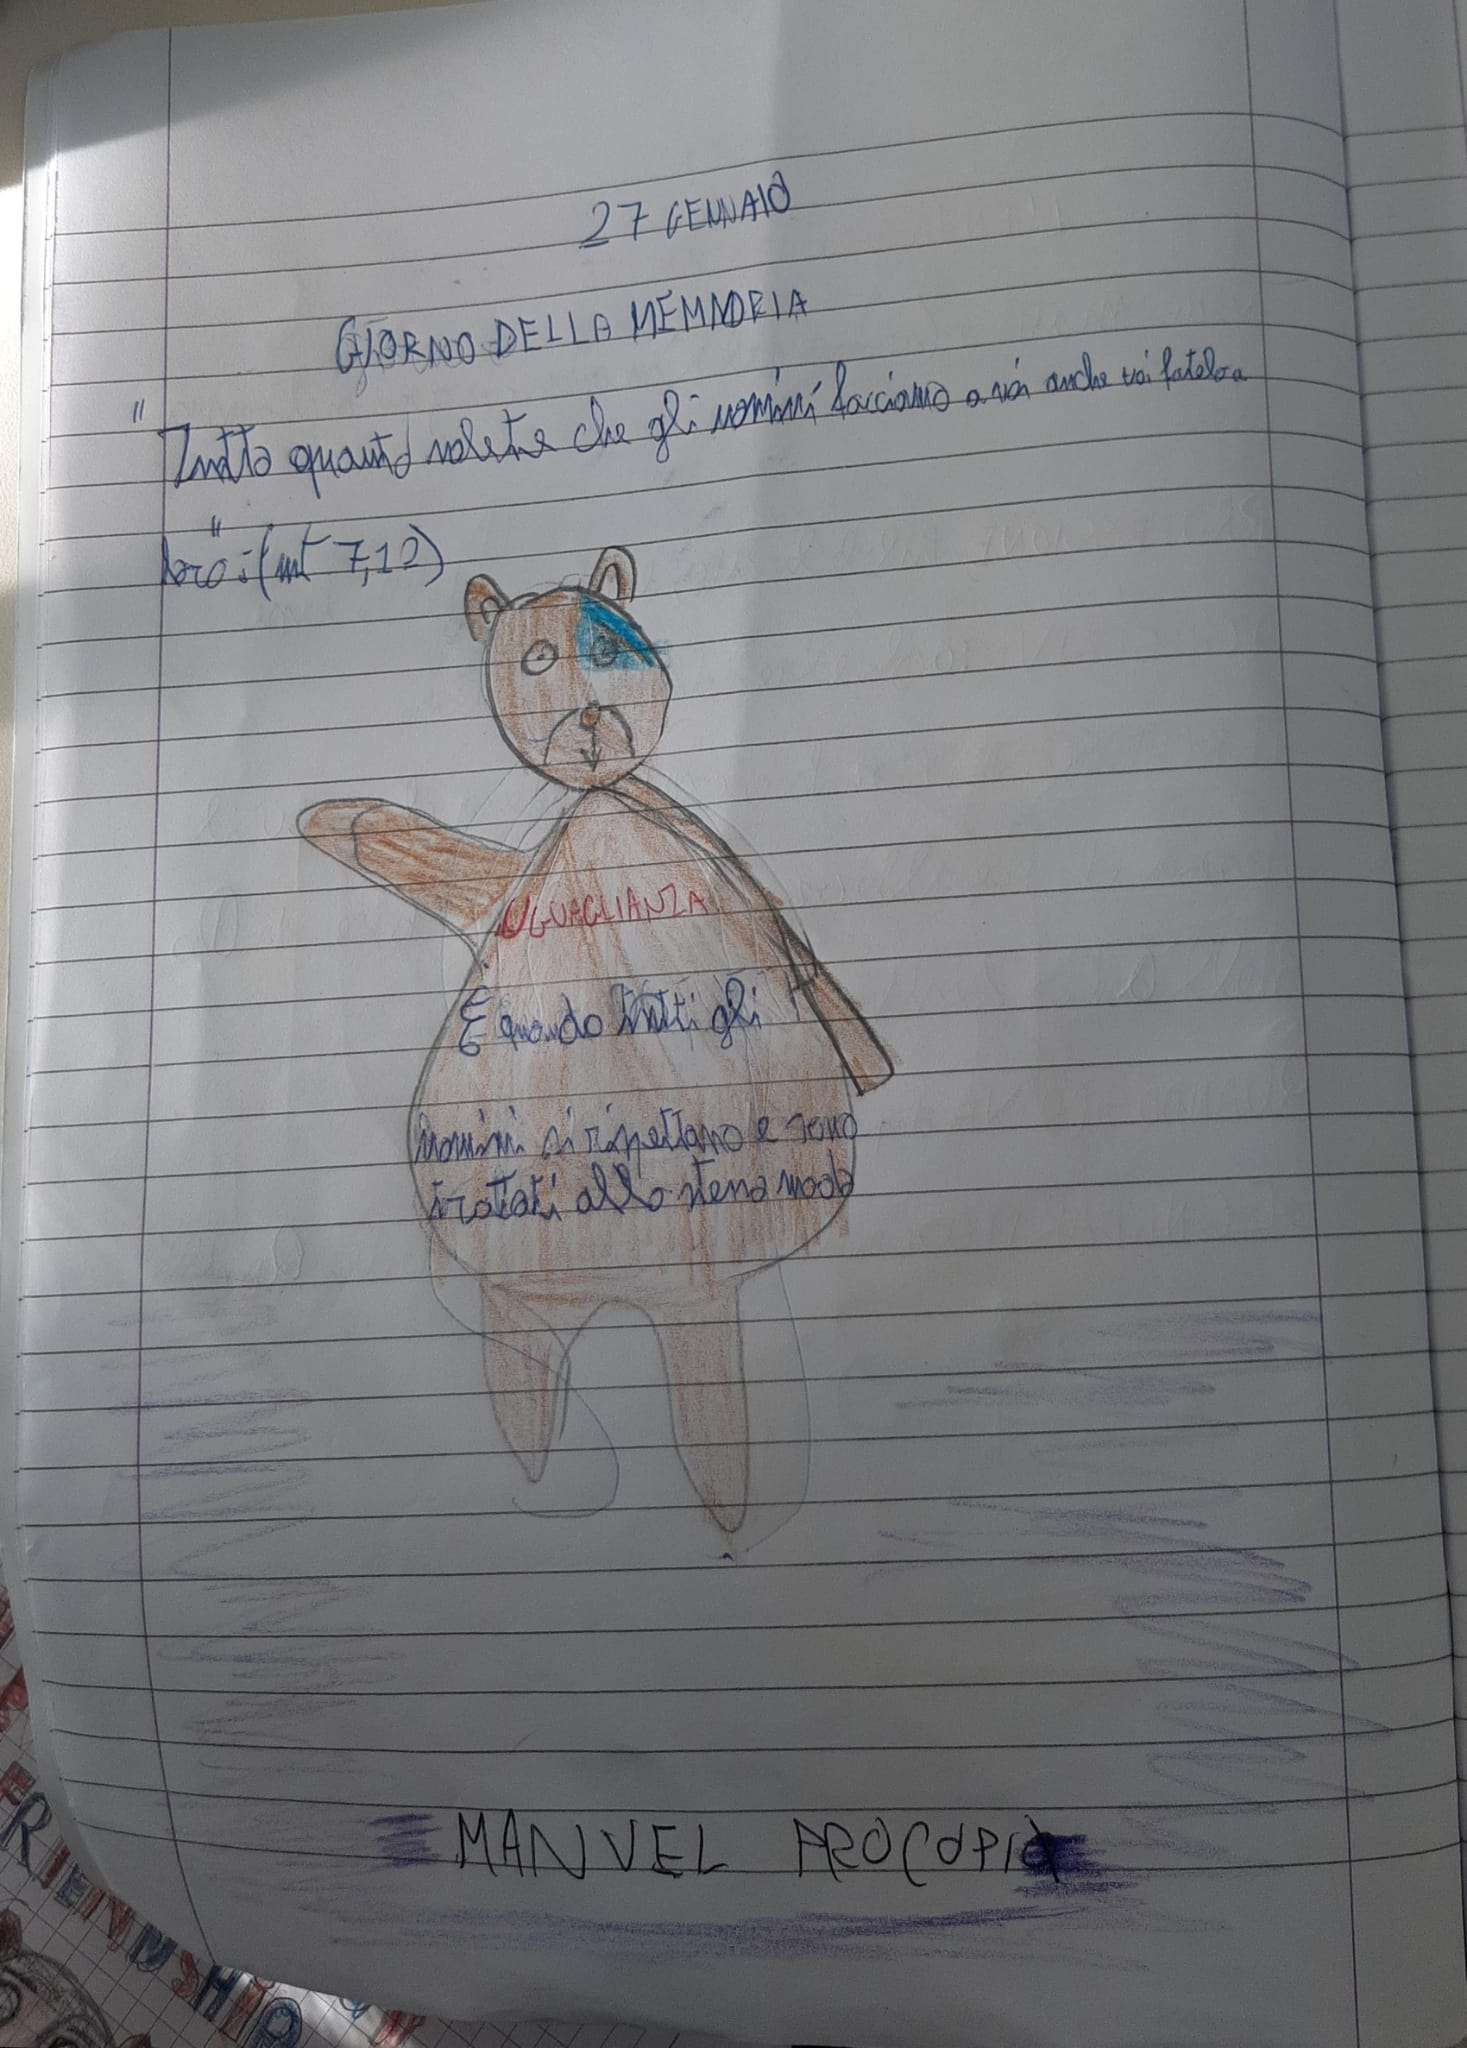 27 GENNAIO
GIORNO DELLA MEMMORIA
"Tutto quanto volete che gli uomini facciano a voi anche voi fatelo a
loro": (mt 7,12)
UGUAGLIANZA
È quando tutti gli
uomini si rispettano e sono
trattati allo stesso modo
MANUEL PROCOPIO
FRIENDSHIP